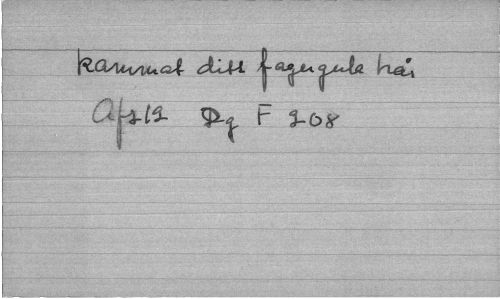 kammat ditt fagergula hår
Afz 12 Dg F 208